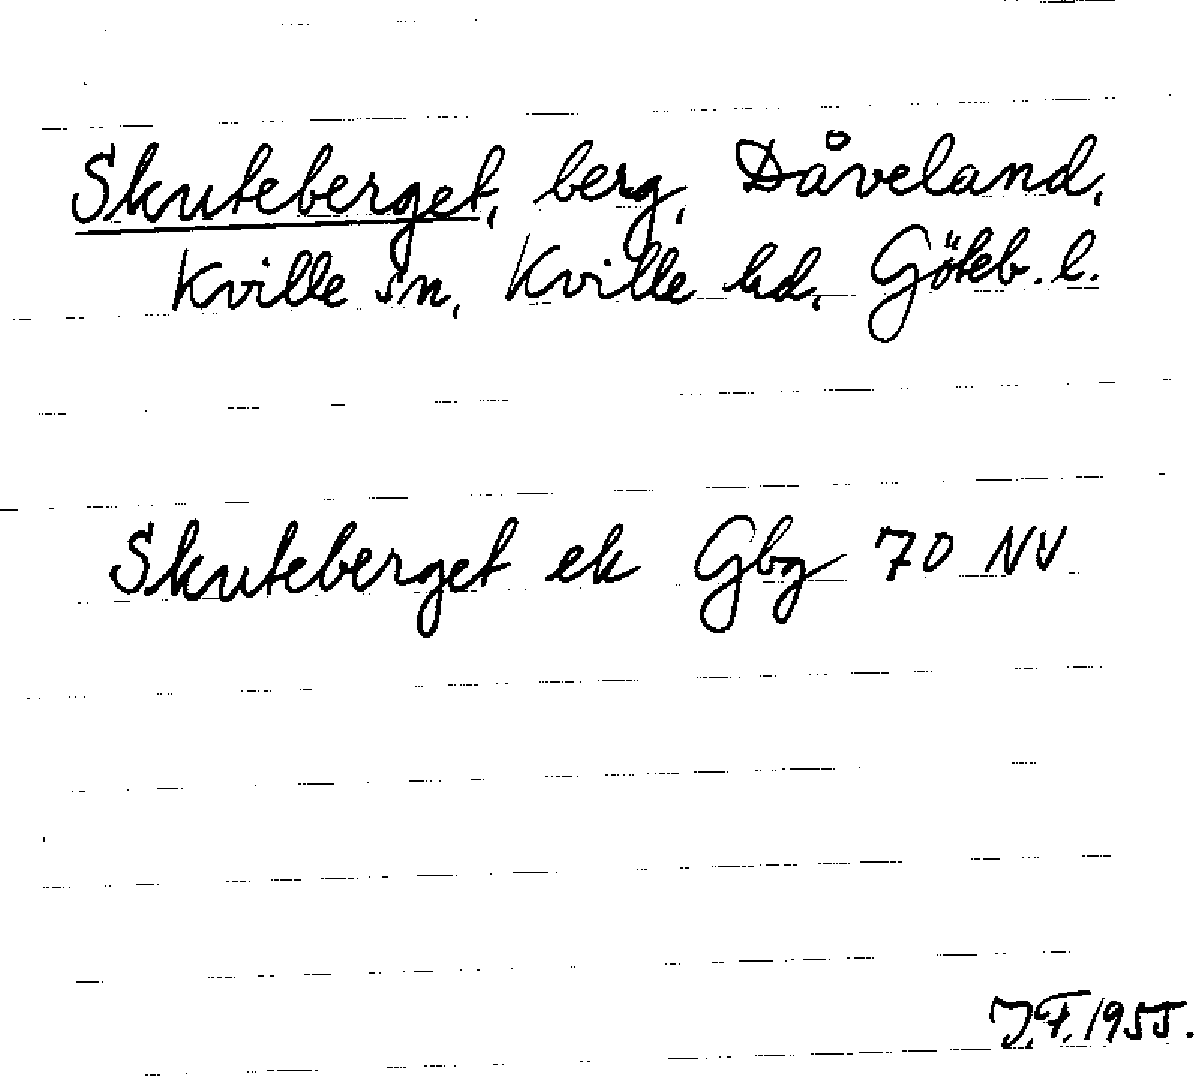 Skuteberget, berg, Dåveland,
Kville sn, Kville hd, Göteb. l.
Skuteberget ek Gbg 70 NV
J.F. 1955.